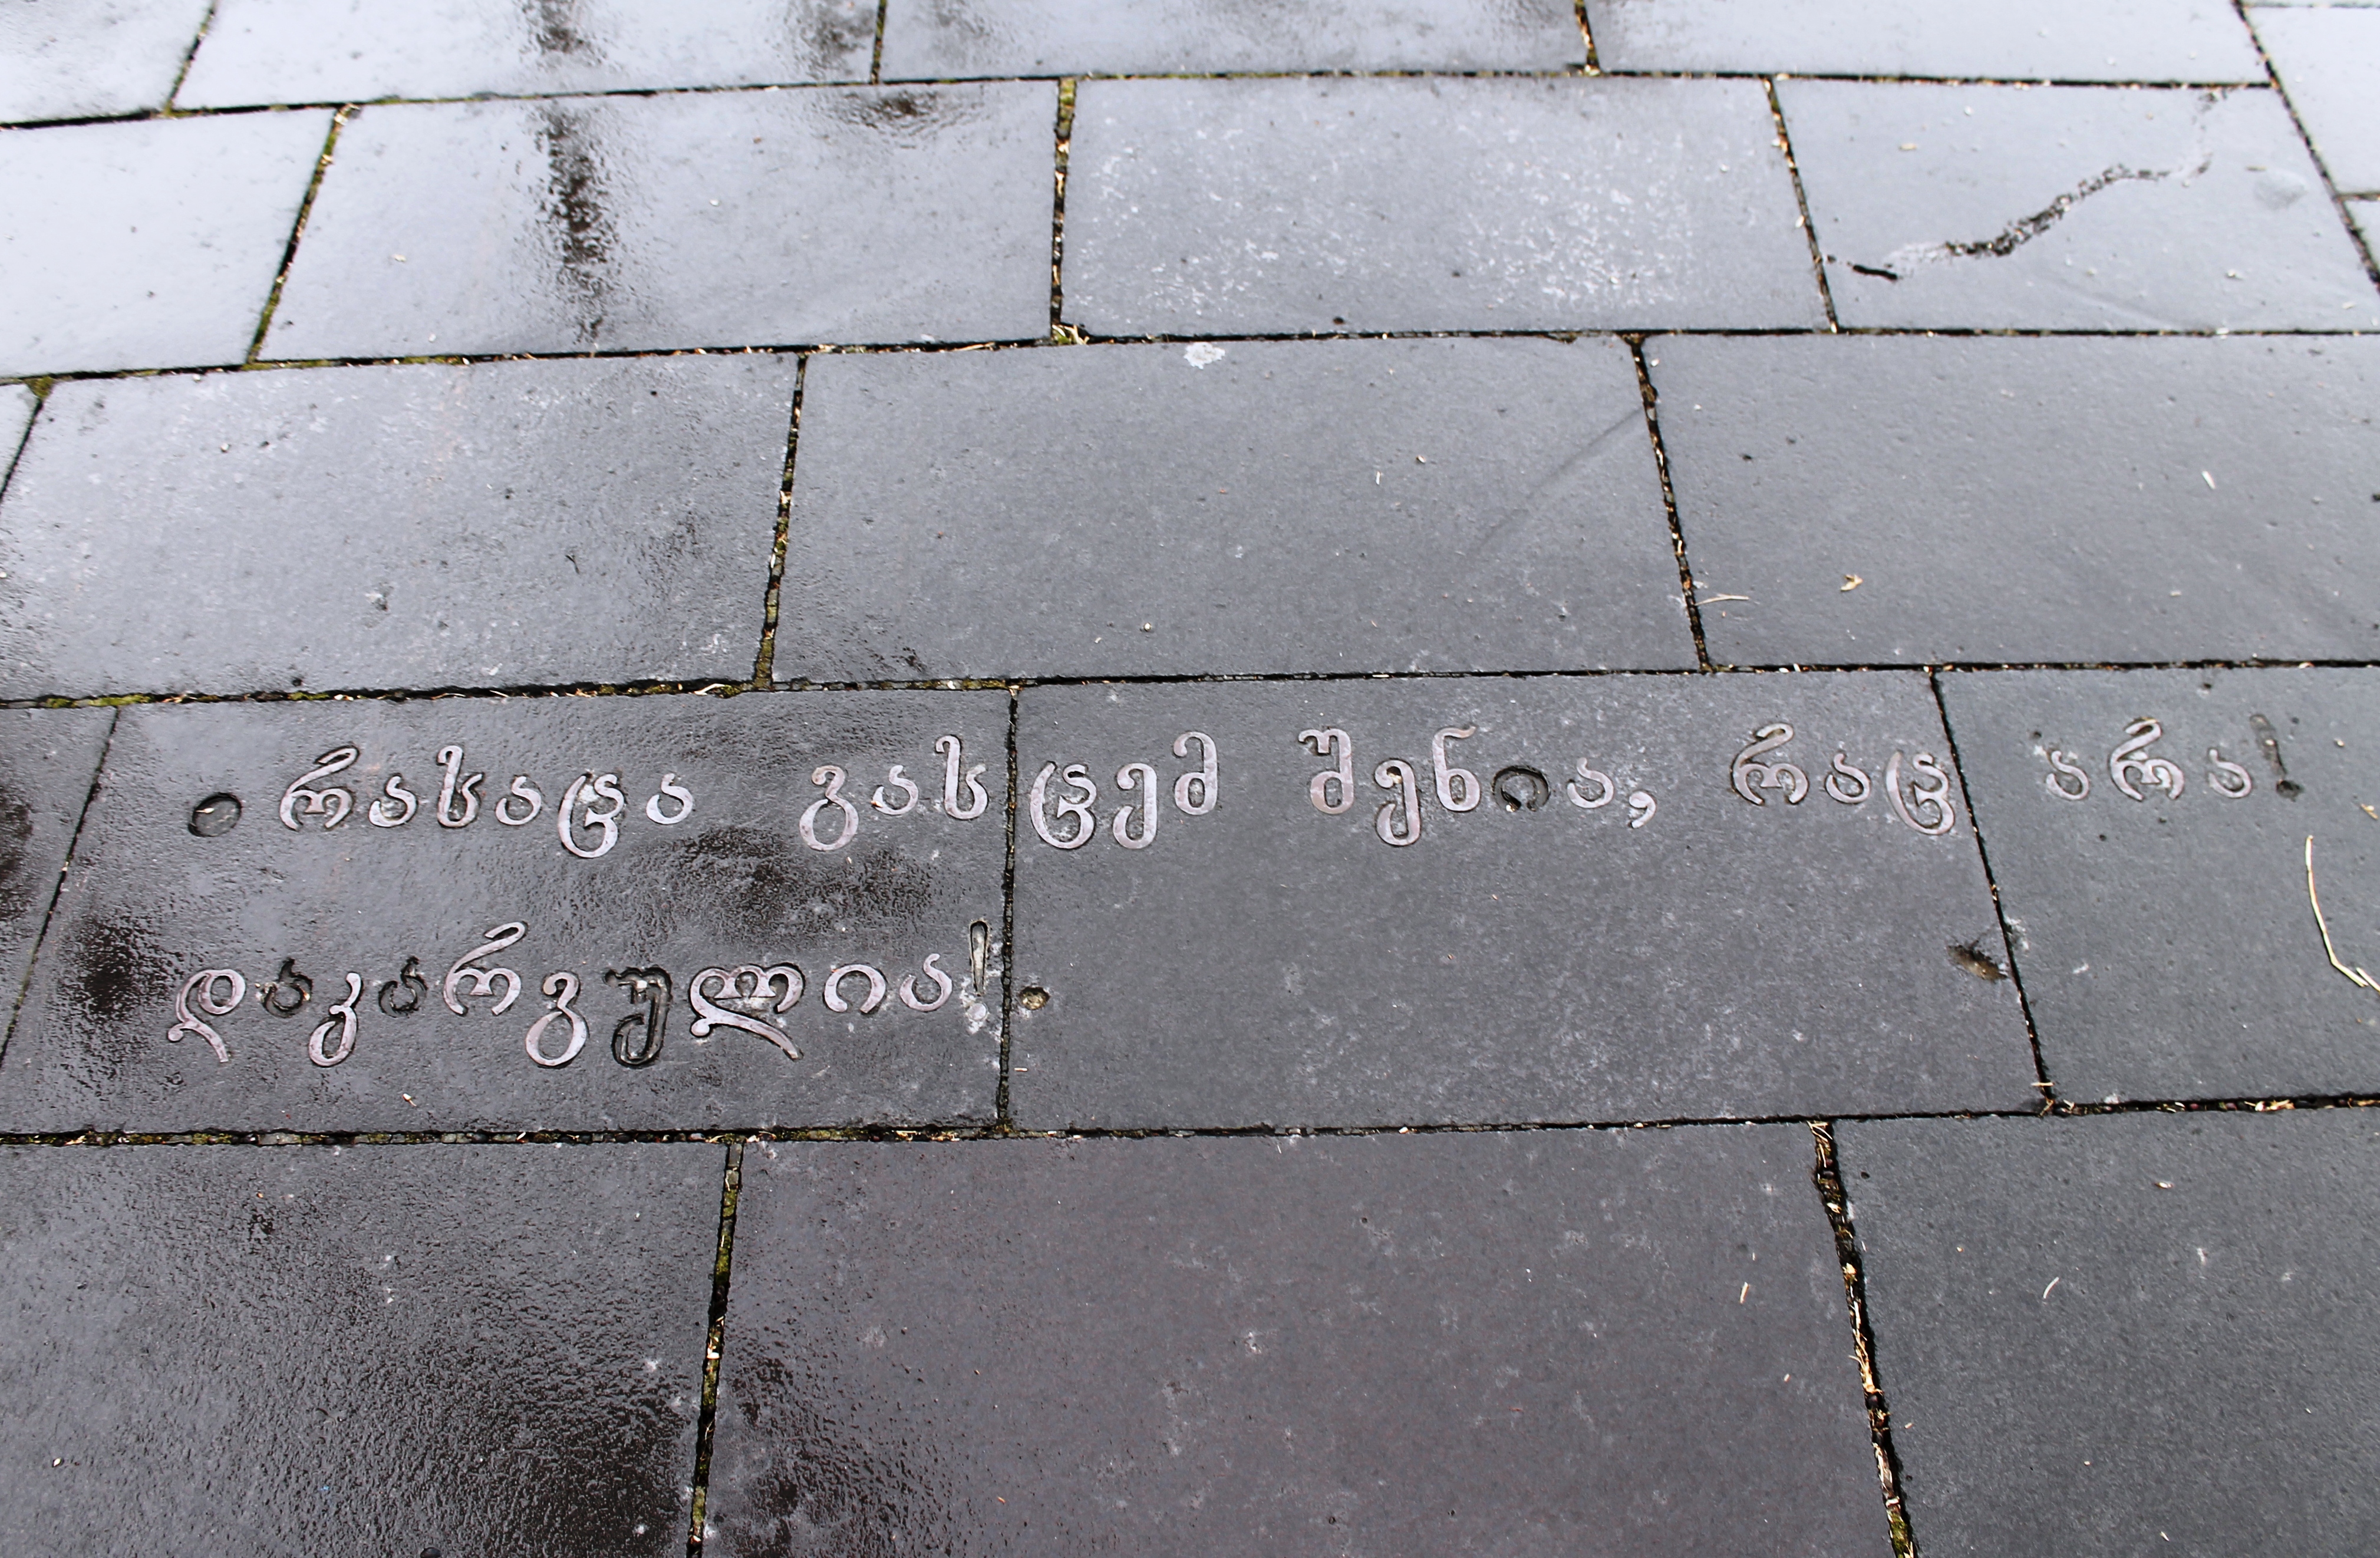 • რასაცა გასცემ შენია, რაც არა!
დაკარგულია!